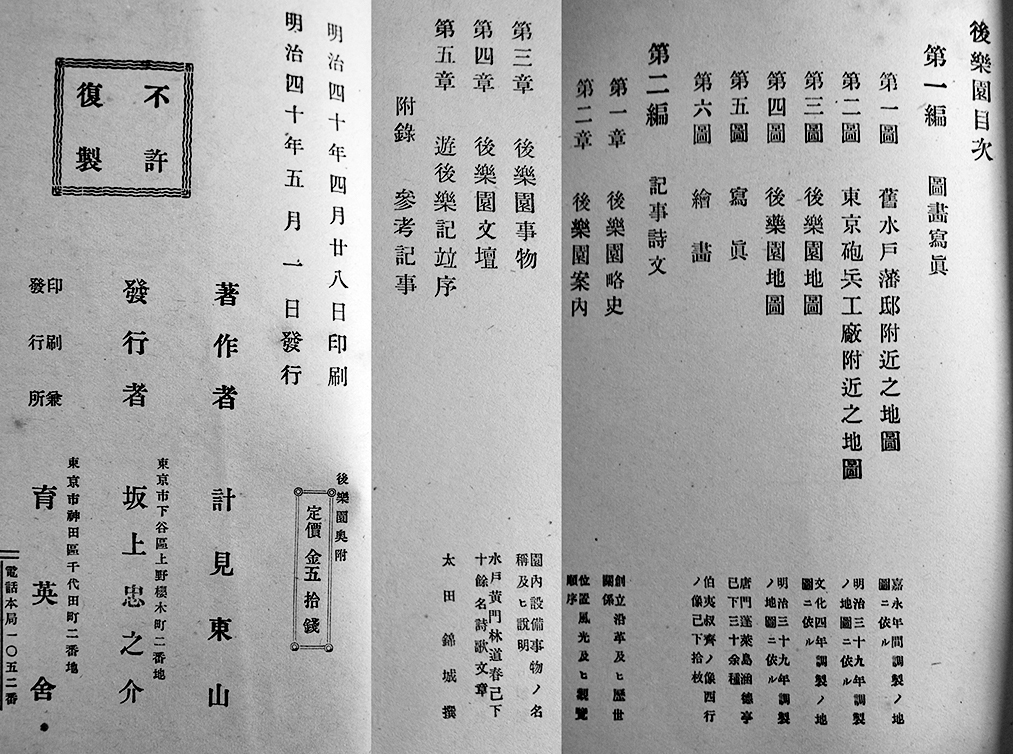 後樂園目次
第一編　圖畫寫眞
第一圖　舊水戸藩邸附近之地圖　嘉永年間調製ノ地圖ニ依ル
第二圖　東京砲兵工廠附近之地圖　明治三十九年調製ノ地圖ニ依ル
第三圖　後樂園地圖　文化四年調製ノ地圖ニ依ル
第四圖　後樂園地圖　明治三十九年調製ノ地圖ニ依ル
第五圖　寫眞　唐門蓬萊島涵德亭已下三十余種
第六圖　繪畫　伯夷叔齊ノ像西行ノ像已下拾枚
第二編　記事詩文
第一章　後樂園略史　創立沿革及ヒ歷世關係
第二章　後樂園案内　位置風光及ヒ觀覽順序
第三章　後樂園事物　園內設備事物ノ名稱及ヒ說明
第四章　後樂園文壇　水戸黃門林道春已下十餘名詩歌文章
第五章　遊後樂記竝序　太田錦城撰
附錄　參考記事
後樂園奧附
定價金五拾錢
明治四十年四月廿八日印刷
明治四十年五月一日發行
不許復製
著作者　計見東山
東京市下谷區上野櫻木町二番地
發行者　坂上忠之介
東京市神田區千代田町二番地
印刷兼發行所　育英舍
電話本局一〇五二番